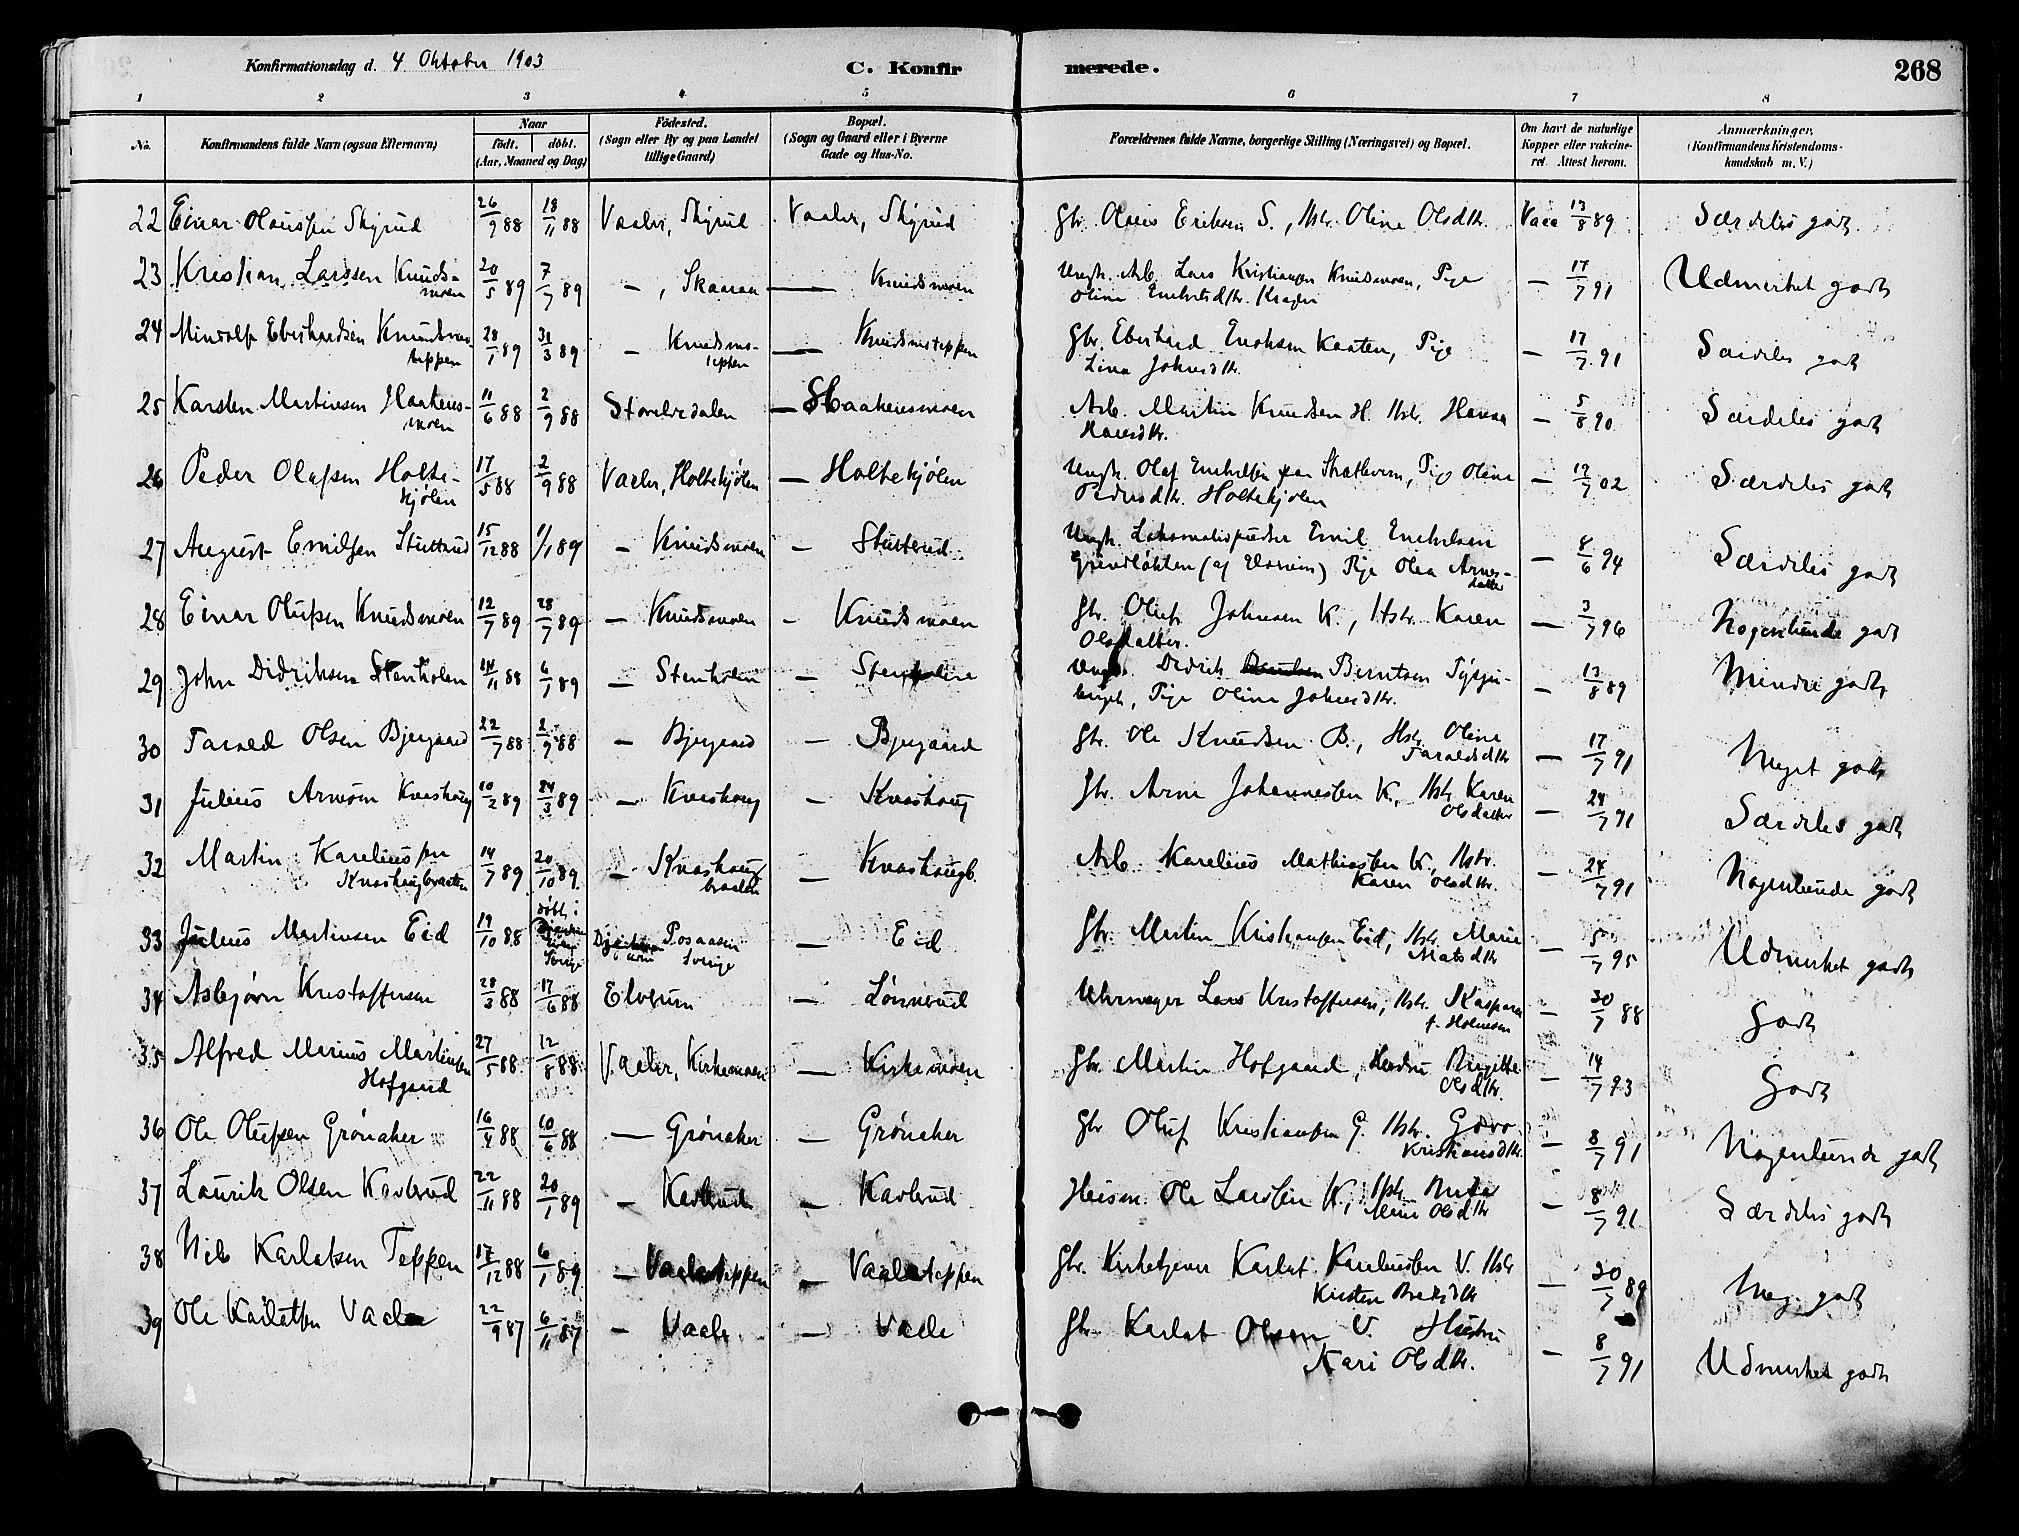 Konfirmationsdag d. 4 Oktober 1903 C. Konfirmerede. 268
1 2 3 4 5 6 7 8
No. Konfirmandens fulde Navn (ogsaa Efternavn) Naar født. døbt. (Aar, Maaned og Dag) Fødested. (Sogn eller By og paa Landet tillige Gaard) Bopæl. (Sogn og Gaard eller i Byerne Gade og Hus-No. Forældrenes fulde Navne, borgerlige Stilling (Næringsvei) og Bopæl. Om havt de naturlige Kopper eller vakcineret. Attest herom. Anmærkninger. (Konfirmandens Kristendomskundskab m. V.)
22 Einar Olaussen Skyrud 26/9 88 18/11 88 Vaaler, Skyrud Vaaler, Skyrud Gbr. Olaus Eriksen S., Hstr. Oline Olsdtr. Vacc 13/8 89 Særdeles godt
23 Kristian Larssen Knudsmoen 20/5 89 7/7 89 — , Skaaraa — Knudsmoen Ungk. Arb. Lars Kristiansen Knudsmoen, Pige
Oline — 17/7 91 Udmerket godt
24 Eberhardsen 28/1 89 31/3 89 — Knudsmoteppen Gbr. Eberhard Kaaten, Pige
Lina Johnsdtr. — 17/7 91 Særdeles godt
25 Karsten Martinsen Haakensmoen 11/6 88 2/9 88 Storelvdalen — Haakensmoen Arb. Martin Knudsen H. Hstr. Hanna
Hansdtr. — 5/8 90 Særdeles godt
26 Peder Olafsen Holtekjølen 17/5 88 2/9 88 Vaaler, Holtekjølen — Holtekjølen Ungk. Olaf Pige Oline
Pedersdtr. Holtekjølen — 02 Særdeles godt
27 August Emilsen Stutterud 15/12 88 1/1 89 — Knudsmoen — Stutterud Ungk. Lokomotivpudser Emil
(af Elverum) Pige Olea Arnesdatter — 8/6 94 Særdeles godt
28 Einar Olufsen Knudsmoen 12/7 89 28/7 89 — Knudsmoen - Knudsmoen Gbr. Oluf Johnsen K., Hstr. Karen
Olsdatter. — 3/7 96 Nogenlunde godt
29 John Didriksen Stenholen 14/11 88 6/1 89 — Didrik Berntsen
Pige Oline Johnsdtr. — 13/8 89 Mindre godt
30 Tarald Olsen Bjergaard 22/7 88 2/9 88 — Bjergaard — Bjergaard Gbr. Ole Knudsen B., Hstr. Oline
Taraldsdtr — 17/7 91 Meget godt
31 Julius Arnesen Kvashoug 10/2 89 24/3 89 — Kvashoug — Kvashoug Gbr. Arne Johannessen K., Hstr. Karen
Olsdatter — 24/7 91 Særdeles godt
32 Martin Kareliussen
Kvashougbraaten 14/7 89 20/10 89 — Kvashougbraaten — Kvashougb. Arb. Karelius Mathiassen K., Hstr.
Karen Olsdtr. — 24/7 91 Nogenlunde godt
33 Julius Martinsen Eid 19/10 88 døbt i Sverige Posaasen Sverige — Eid Gbr. Martin Kristiansen Eid, Hstr. Marie
Matsdtr — 5/7 95 Udmerket godt
34 Asbjørn Kristoffersen 28/3 88 17/6 88 Elverum — Lønnerud Uhrmager Lars Kristoffersen, Hstr. Kaspara
f. Holmsen — 30/7 88 Godt
35 Alfred Marius Martinsen
Hofgaard 27/5 88 12/8 88 Vaaler, Kirkemoen — Kirkemoen Gbr. Martin Hofgaard, Hustru Birgitte
Olsdtr. — 14/7 93 Godt
36 Ole Olufsen Grønaker 16/4 88 10/6 88 — Grønaker — Grønaker Gbr Oluf Kristiansen G. Hstr.
Kristiansdtr. — 8/7 91 Nogenlunde godt
37 Laurik Olsen Kavlerud 22/11 88 20/1 89 — Kavlerud — Kavlerud Husm. Ole Larssen K., Hstr.
Olsdtr — 8/7 91 Særdeles godt
38 Nils Karlatsen Teppen 17/12 88 6/1 89 — Vaalerteppen — Vaalerteppen Gbr. Karlat Kareliussen V. Hstr
Kirsten — 20/7 89 Meg. godt
39 Ole Karlatsen Vaaler 22/9 87 6/11 87 — Vaaler — Vaaler Gbr. Karlat Olsen V. Hustru
Kari Olsdtr. — 8/7 91 Udmerket godt